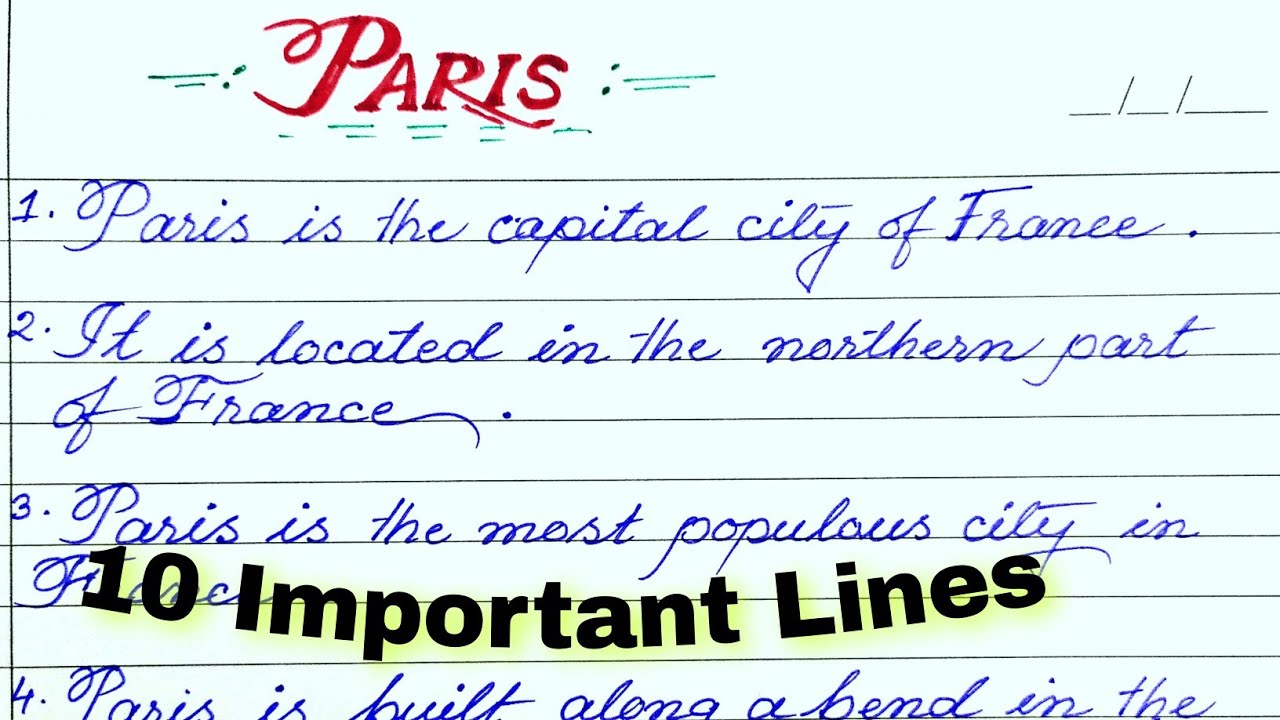 PARIS
__/__/____
1. Paris is the capital city of France.
2. It is located in the northern part
of France.
3. Paris is the most populous city in
France
10 Important Lines
4. Paris is built along a bend in the